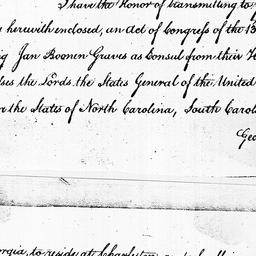 I have the Honor of transmitting to
herewith enclosed, an act of Congress of the 13
Jan Boonen Graves as Consul from their H
the Lords the States General of the United
the States of North Carolina, South Carol
Geo
to reside at Charleston